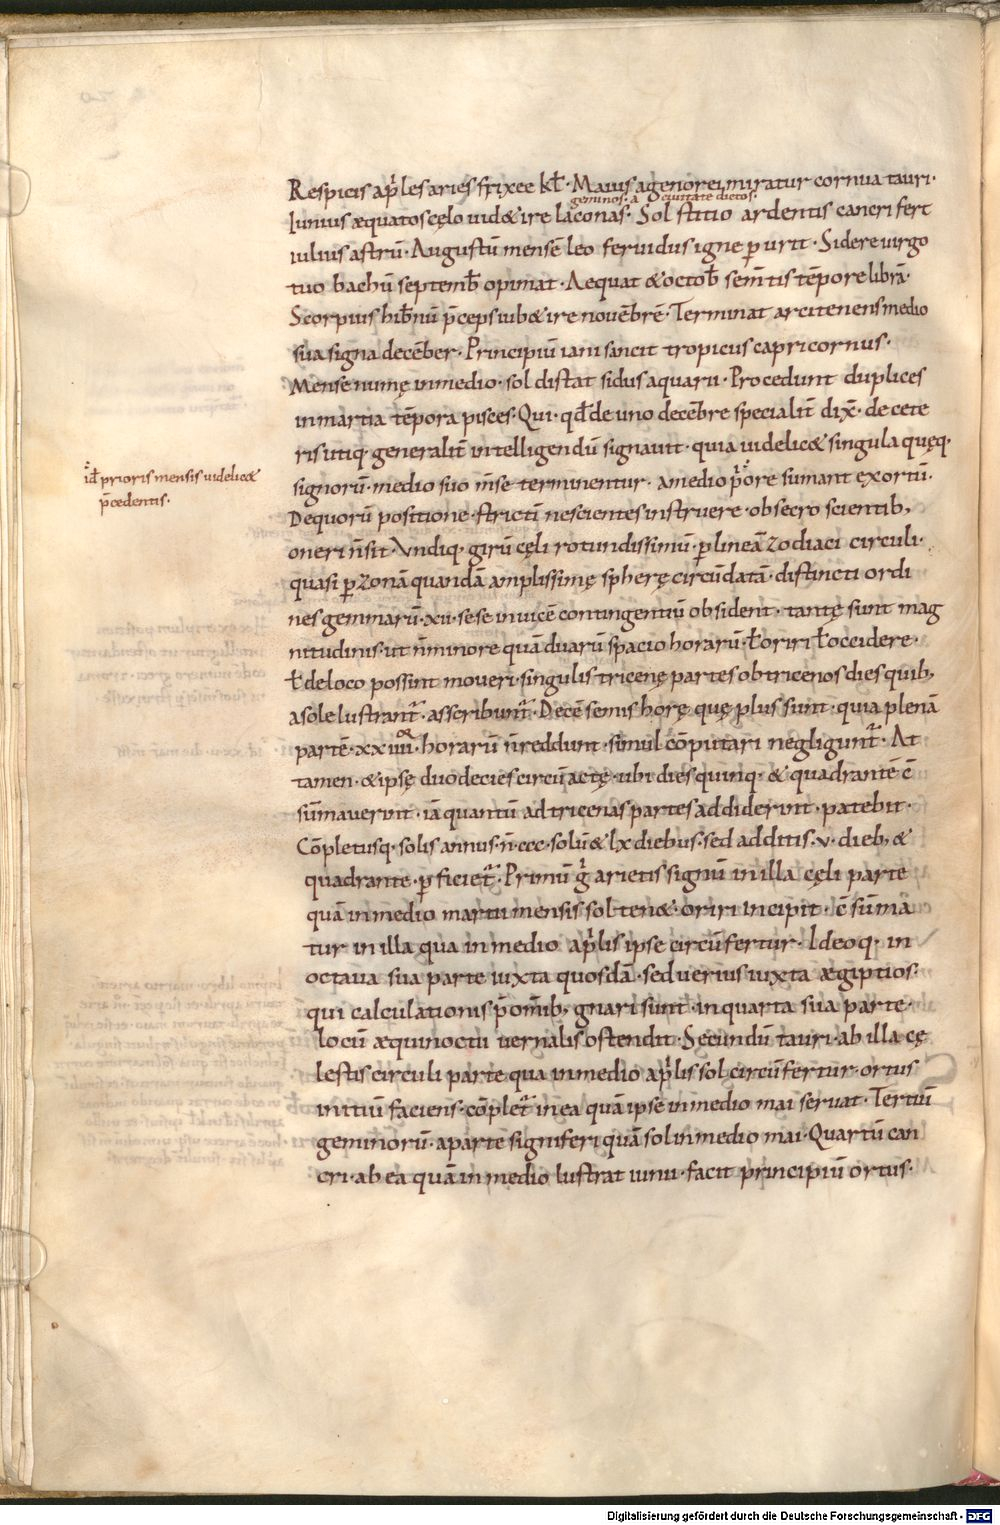 Respicis ap̄les aries frixee kƚ· Maius agenorei miratur cornua tauri·
geminos· a ciuitate dictos·
Iunius æquatos cęlo uid& ire laconas· Solstitio ardentis cancri fert
iulius astrū· Augustū mensē leo feruidus igne ꝑurit· Sidere uirgo
tuo bachū septemƀ opimat· Aequat & octoƀ sem̄tis tēpore librā·
Scorpius hiƀnū p̄ceps iub& ire nouēbrē· Terminat arcitenens medio
sua signa decēber· Principiū iani sancit tropicus capricornus·
Mense numę in medio· sol distat sidus aquarii· Procedunt duplices
in martia tēpora pisces· Qui· qđ de uno decēbre specialit̄ dix̄· de cete
ris utiq· generalit̄ intelligendū signauit· quia uidelic& singula quęq·
id̄ prioris mensis uidelic&
p̄cedentis·
signorū· medio suo m̄se terminentur· a medio p̄ore sumant exortū·
De quorū positione· strictī nescientes instruere· obsecro scientib,
oneri n̄ sit· Vndiq· girū cęli rotundissimū· ꝑ lineā zodiaci circuli·
quasi ꝑ zonā quandā amplissimę spherę circūdatā· distincti ordi
nes gemmarū· xii· sese inuicē contingentiū obsident· tantę sunt mag
nitudinis· ut n̄ minore quā duarū spacio horarū· ƚ oriri ƚ occidere·
ƚ de loco possint moueri· singulis tricenę partes ob tricenos dies quib,
a sole lustrant̄· asseribunt̄· Decē semis horę quę plus sunt· quia plenā
partē· xxiiii· horarū n̄ reddunt· simul cōputari negligunt̄· At
tamen· & ipsę duodecies circū actę· ubi dies quinq· & quadrantē c̄
sūmauerint· iā quantū ad tricenas partes addiderint· patebit·
Cōpletusq· solis annus· n̄ ccc· solū & lx diebus· sed additis· v· dieb, &
quadrante· ꝑficiet̄· Primū g̊ arietis signū in illa cęli parte
quā in medio martii mensis sol ten&· oriri incipit· c̄sūma
tur in illa qua in medio ap̄lis ipse circūfertur· Ideoq· in
octaua sua parte iuxta quosdā· sed uerius iuxta ægiptios·
qui calculationis p̄ om̄ib, gnari sunt· in quarta sua parte·
locū æquinoctii uernalis ostendit· Secundū tauri· ab illa cę
lestis circuli parte qua in medio ap̄lis sol circūfertur· ortus
initiū faciens· cōplet̄ in ea quā ipse in medio mai seruat· Tertiū
geminorū· a parte signiferi quā sol in medio mai· Quartū can
cri· ab ea quā in medio lustrat iunii· facit principiū ortus·
Digitalisierung gefördert durch die Deutsche Forschungsgemeinschaft - DFG